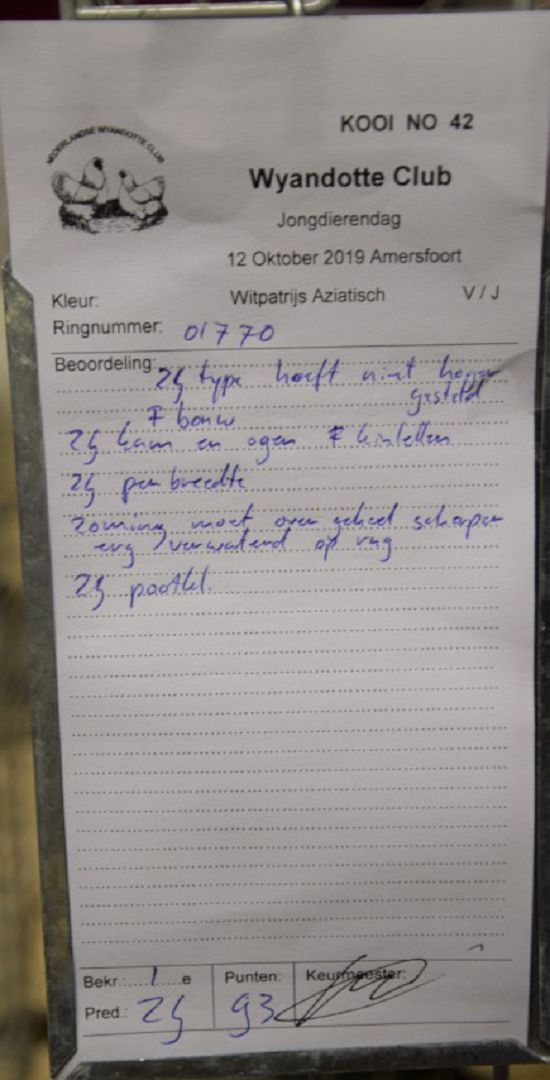 NEDERLANDSE WYANDOTTE CLUB
KOOI NO 42
Wyandotte Club
Jongdierendag
12 Oktober 2019 Amersfoort
Kleur: Witpatrijs Aziatisch V / J
Ringnummer: 01770
Beoordeling: ZG type hoeft niet hoger
gesteld
F bouw
ZG kam en ogen F kinlellen
ZG veerbreedte
Zoming moet over geheel scherper
erg verwaterd op rug
ZG pootkl.
Bekr.: 1 e Punten: Keurmeester:
Pred.: ZG 93